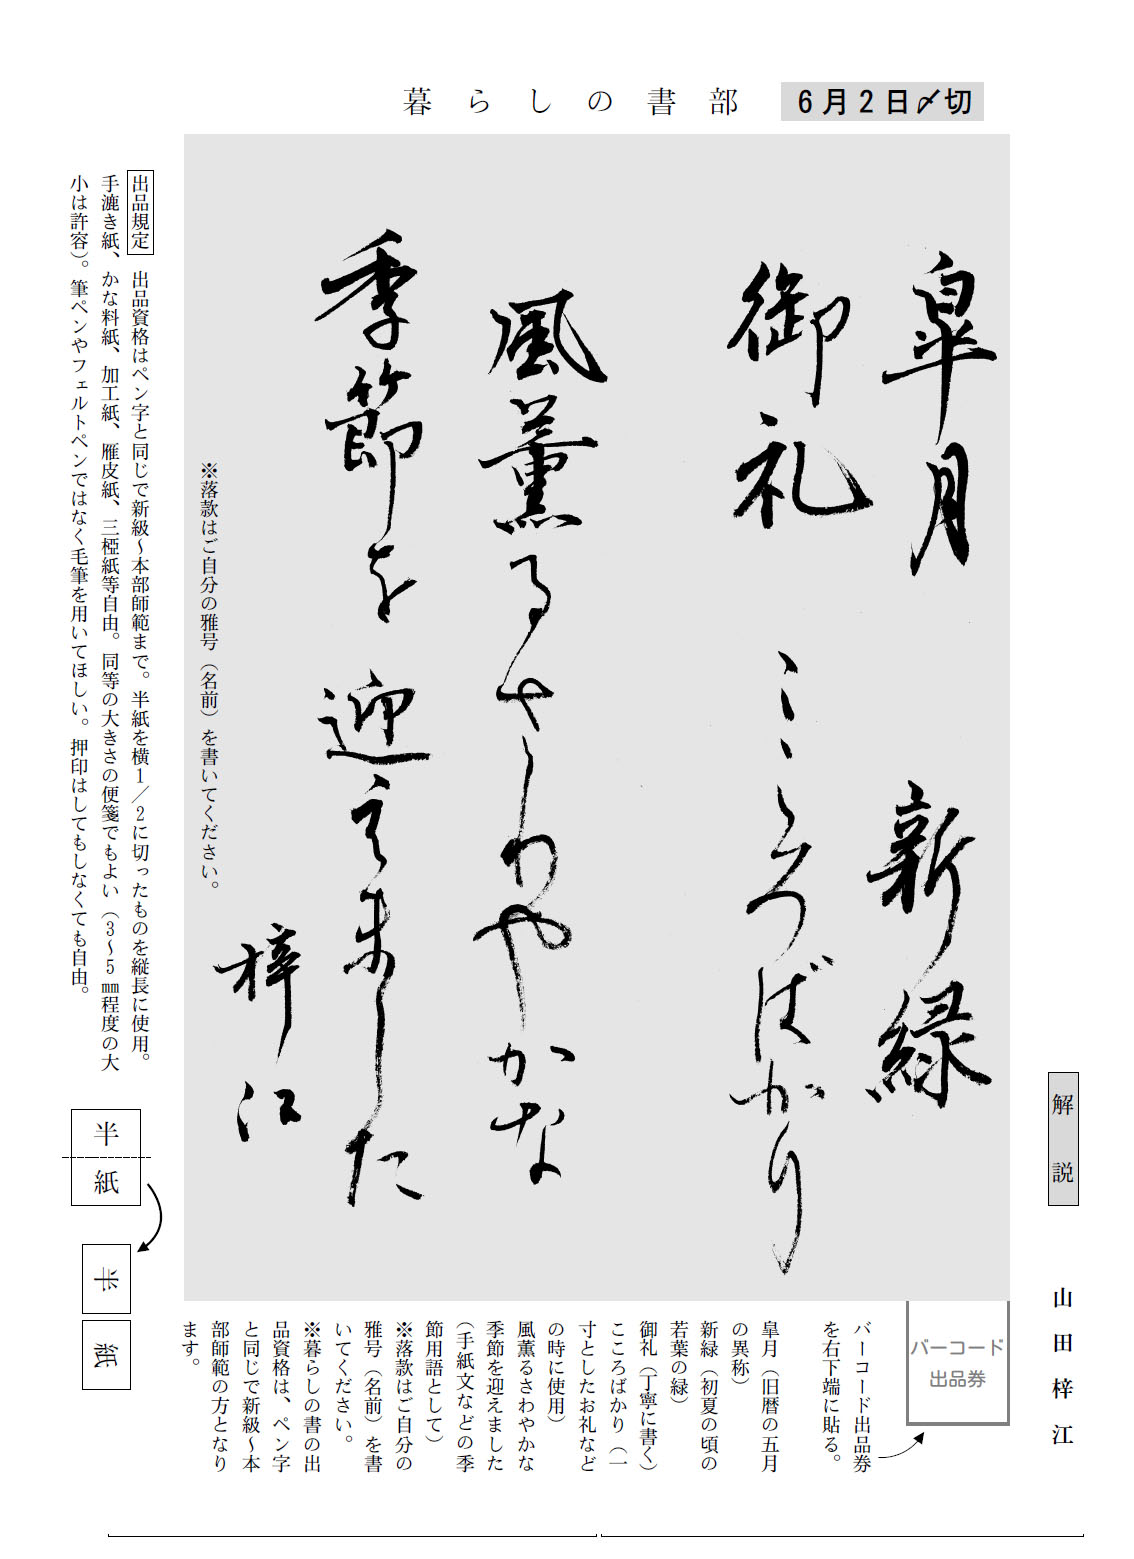 暮らしの書部
6月2日〆切
皐月 新緑
御礼 こころばかり
風薫るさわやかな
季節を迎えました
梓江
※落款はご自分の雅号（名前）を書いてください。
出品規定 出品資格はペン字と同じで新級～本部師範まで。半紙を横1／2に切ったものを縦長に使用。
手漉き紙、かな料紙、加工紙、雁皮紙、三椏紙等自由。同等の大きさの便箋でもよい（3～5㎜程度の大
小は許容）。筆ペンやフェルトペンではなく毛筆を用いてほしい。押印はしてもしなくても自由。
半紙
半
紙
解説
山田梓江
バーコード
出品券
バーコード出品券
を右下端に貼る。
皐月（旧暦の五月
の異称）
新緑（初夏の頃の
若葉の緑）
御礼（丁寧に書く）
こころばかり（一
寸としたお礼など
の時に使用）
風薫るさわやかな
季節を迎えました
（手紙文などの季
節用語として）
※落款はご自分の
雅号（名前）を書
いてください。
※暮らしの書の出
品資格は、ペン字
と同じで新級～本
部師範の方となり
ます。